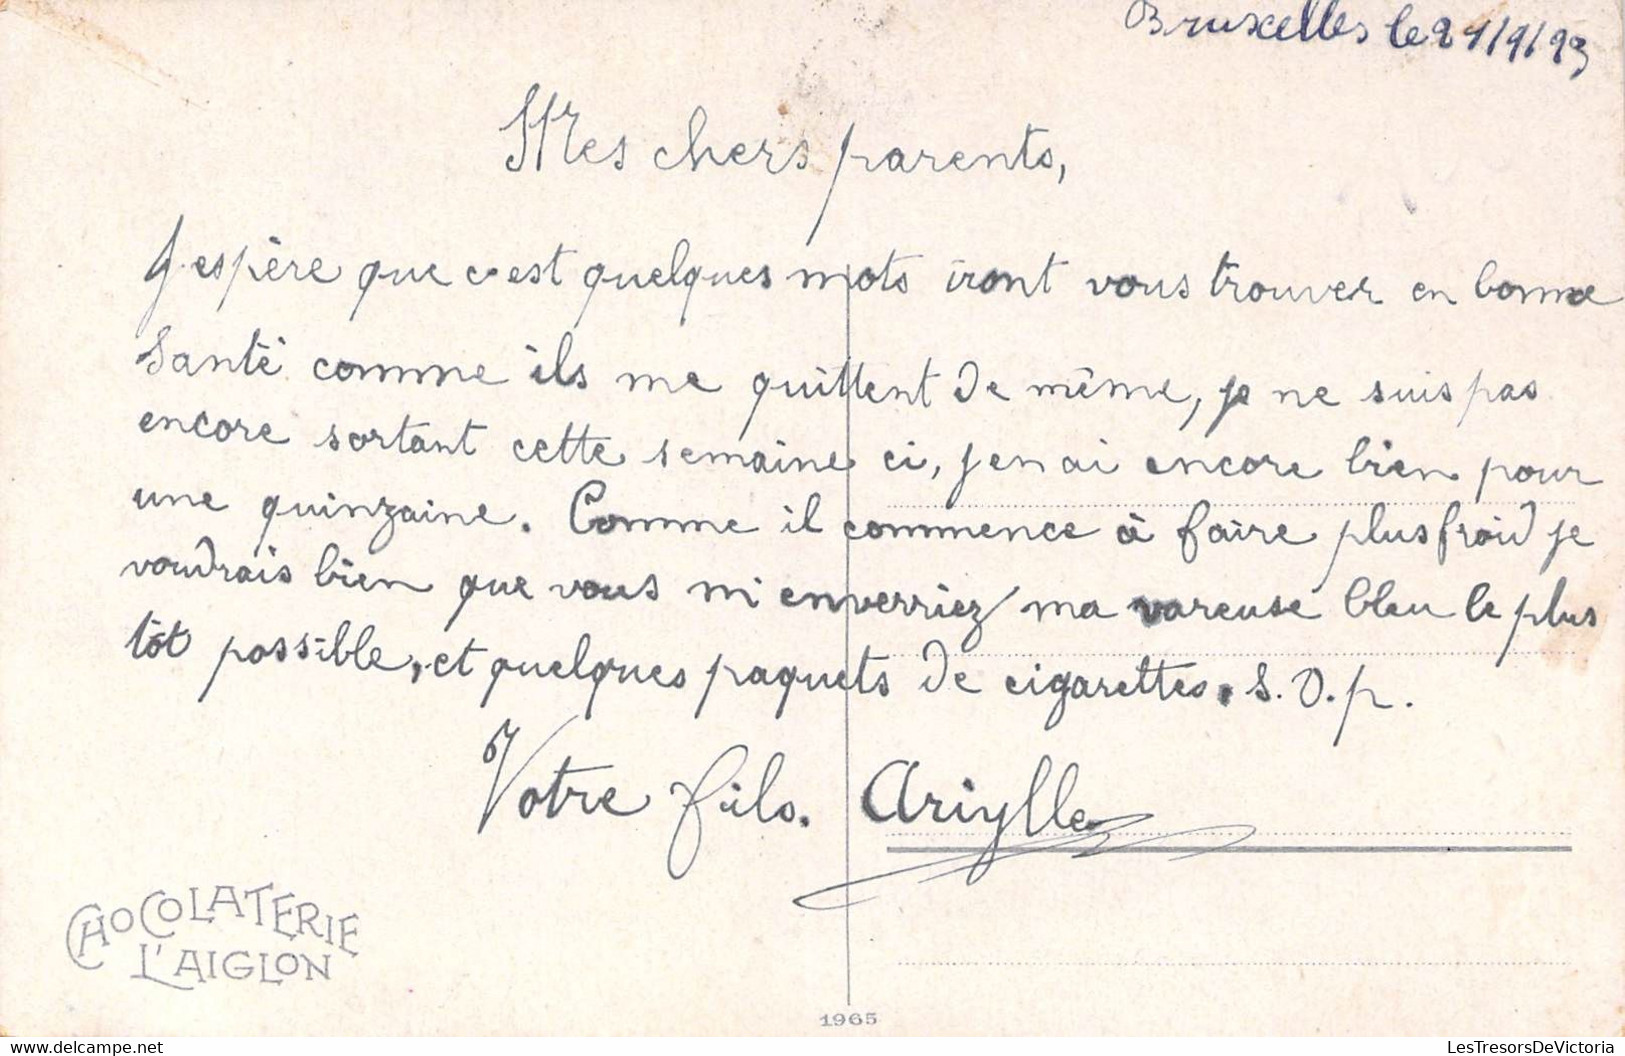 Bruxelles le 21/9/23
Mes chers parents,
J'espère que c'est quelques mots iront vous trouver en bonne
santé comme ils me quittent de même, je ne suis pas
encore sortant cette semaine ci, j'en ai encore bien pour
une quinzaine. Comme il commence à faire plus froid je
voudrais bien que vous m'enverriez ma vareuse bleu le plus
tôt possible, et quelques paquets de cigarettes. S.V.p.
Votre fils. Ariylle
CHOCOLATERIE
L'AIGLON
1965
delcampe.net
LesTresorsDeVictoria